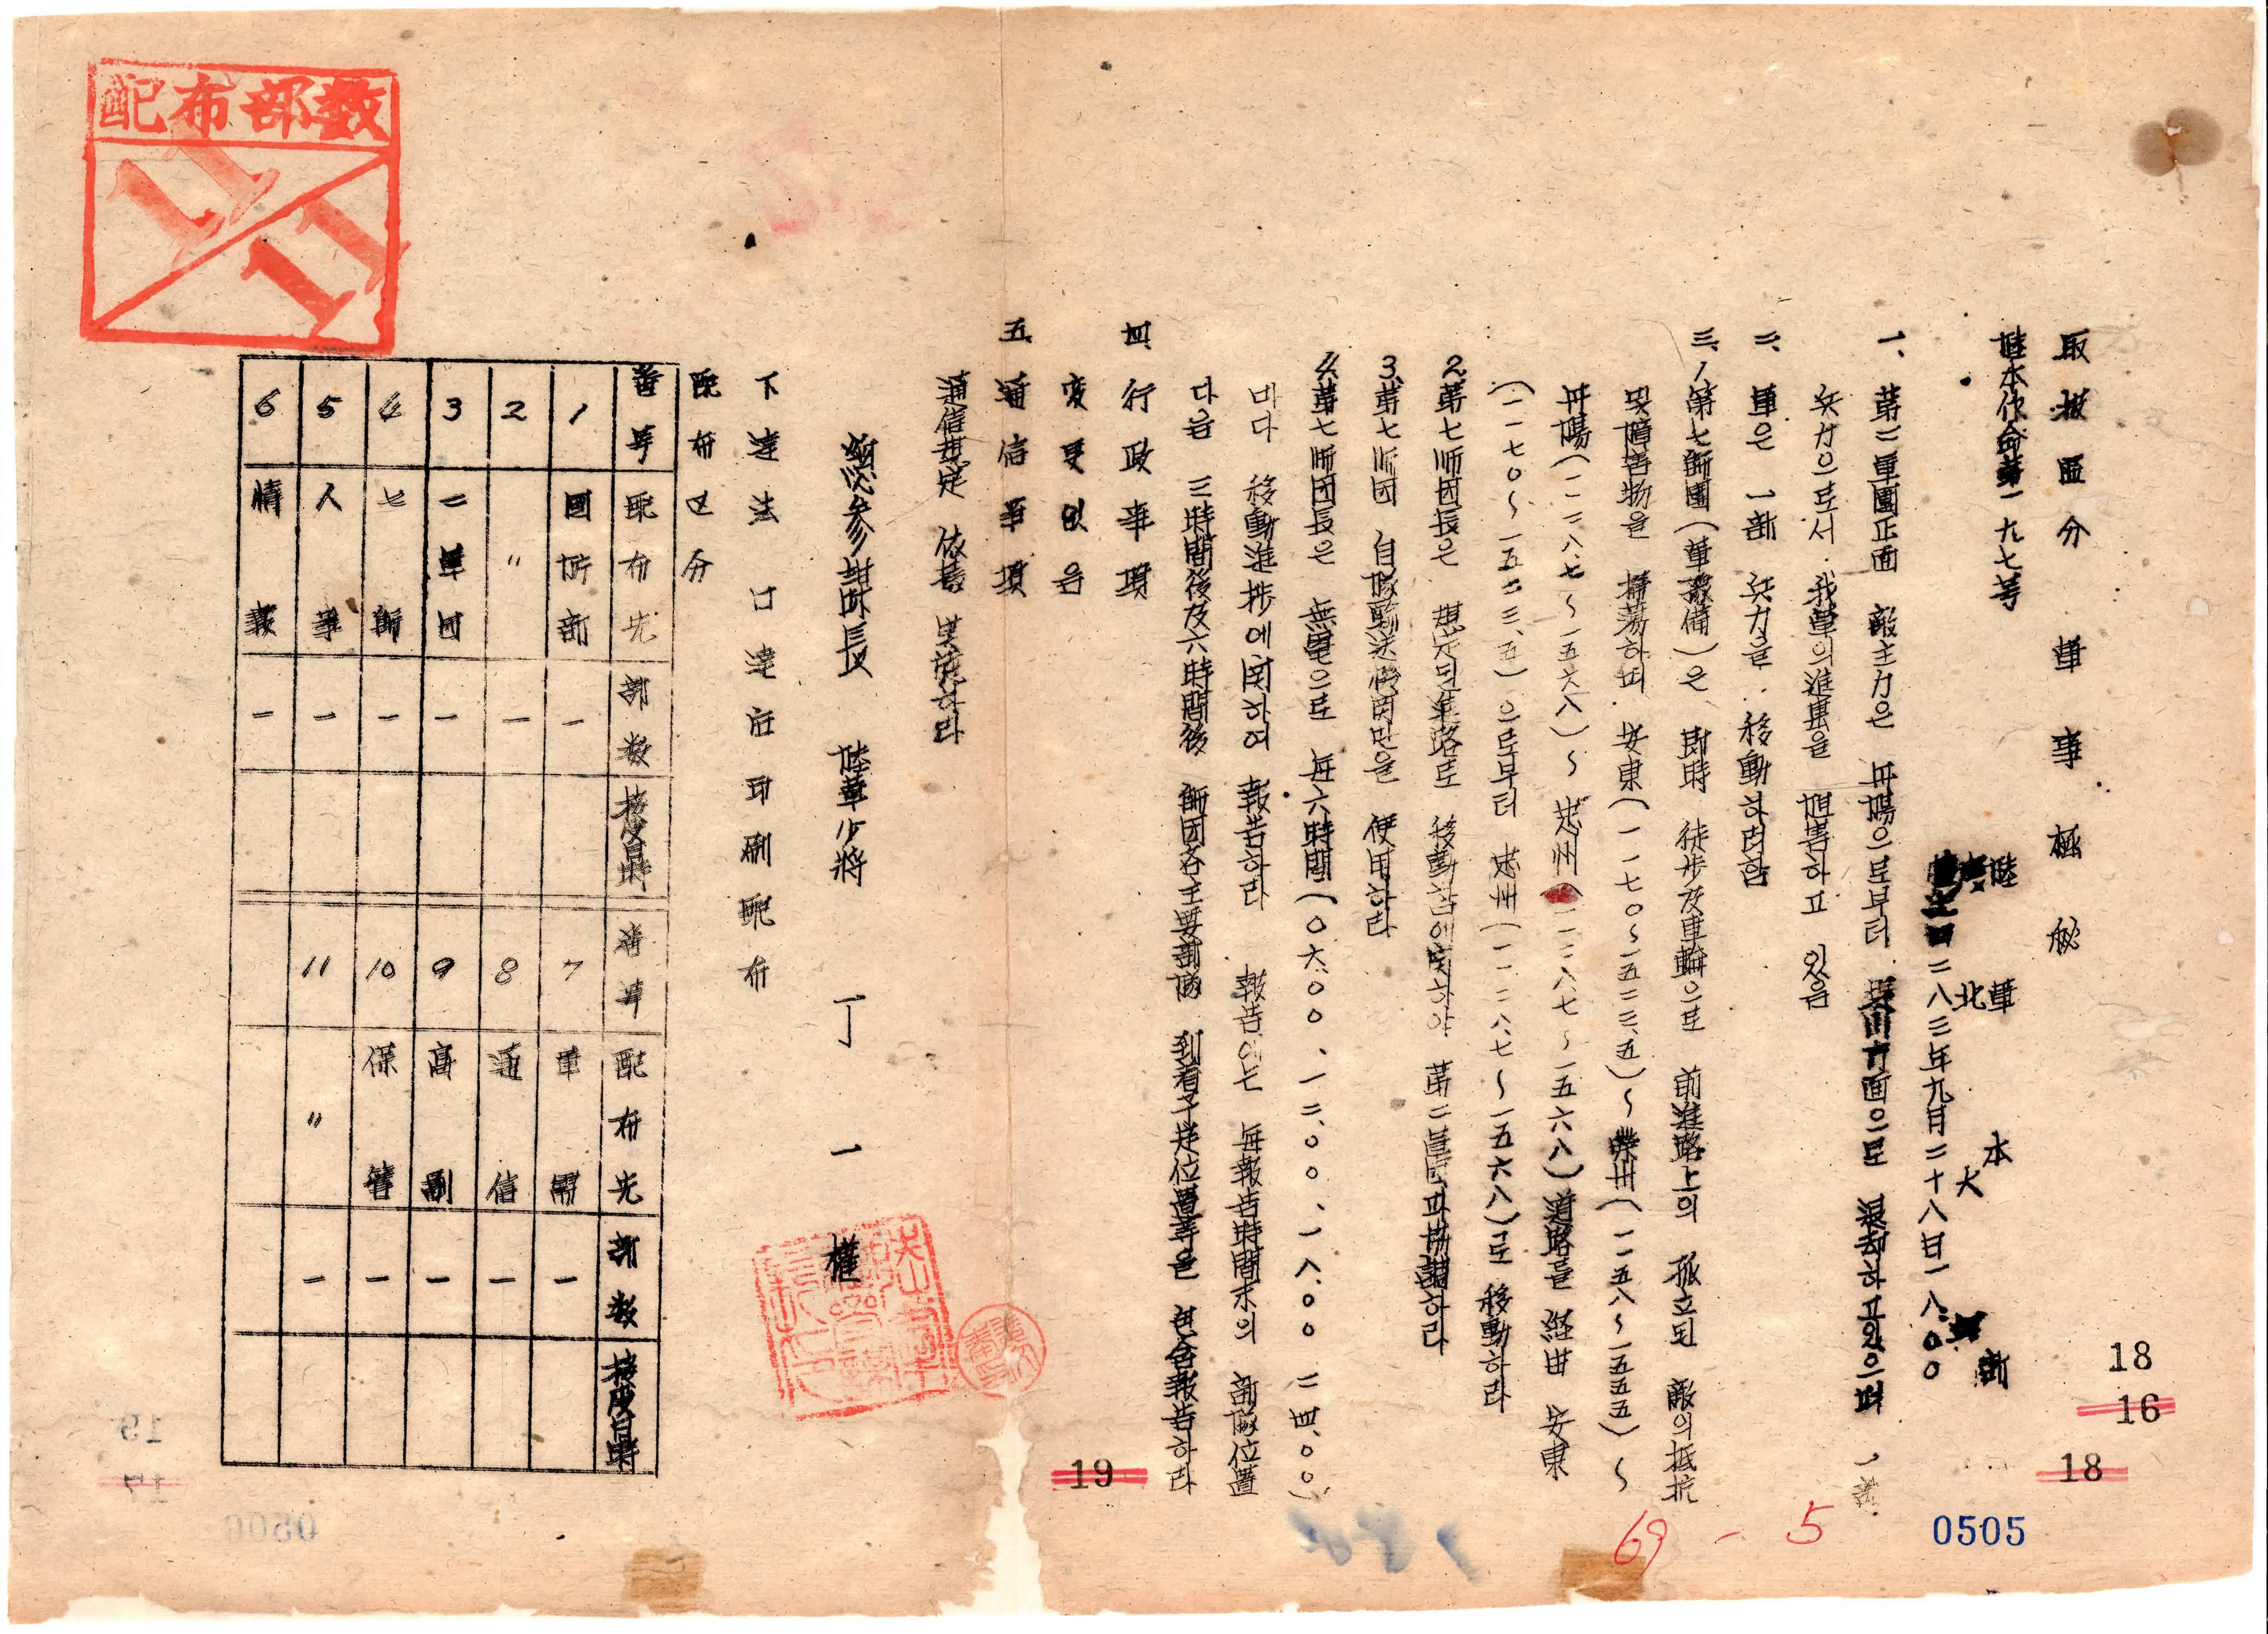 取扱区分 軍事極秘
陸本作命第一九七号
陸軍本部
大北
四二八三年九月二十八日一八.〇〇
一、第二軍團正面 敵主力은 丹陽으로부터 堤川方面으로 退却하고있으며 一部
兵力으로서 我軍의進撃을 阻害하고 있음
二、軍은 一部 兵力을 移動하려함
三、1.第七師團(軍豫備)은 即時 徒步及車輛으로 前進路上의 孤立된 敵의抵抗
및障害物을 掃蕩하며 安東(一一七〇～一五二三、五)～榮州(一一五八～一五五五)～
丹陽(一一二八.七～一五六八)～忠州(一一二八.七～一五六八)道路를 経由 安東
(一一七〇～一五二三、五)으로부터 忠州(一一二八.七～一五六八)로 移動하라
2.第七师团長은 規定된進路로 移動함에関하야 第二軍団과協調하라
3.第七师团 自隊輸送機関만을 使用하라
4.第七师团長은 無電으로 毎六時間(〇六.〇〇、一二.〇〇、一八.〇〇 二四.〇〇)
마다 移動進捗에関하여 報告하라 報告에는 毎報告時間末의 部隊位置
다음 三時間後及六時間後 師団各主要部隊 到着予定位置等을 包含報告하라
四、行政事項
変更없음
五、通信事項
通信規定 依據 実施하라
總参謀長 陸軍少將 丁一權
下達法 口達后印刷配布
配布区分
番号 配布先 部数 接受日時 番号 配布先 部数 接受日時
1 国防部 一 7 軍需 一
2 〃 一 8 通信 一
3 二軍团 一 9 高副 一
4 七師 一 10 保管 一
5 人事 一 11 〃 一
6 情報 一
配布部数
11
11
18
16
18
19
69-5
0505